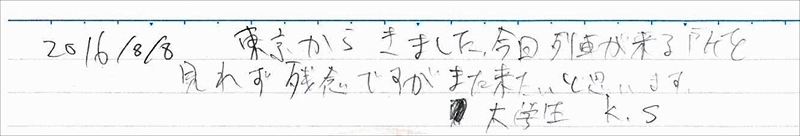 2016/8/8 東京からきました。今回列車が来る所を
見れず残念ですがまた来たいと思います。
大学生 K.S